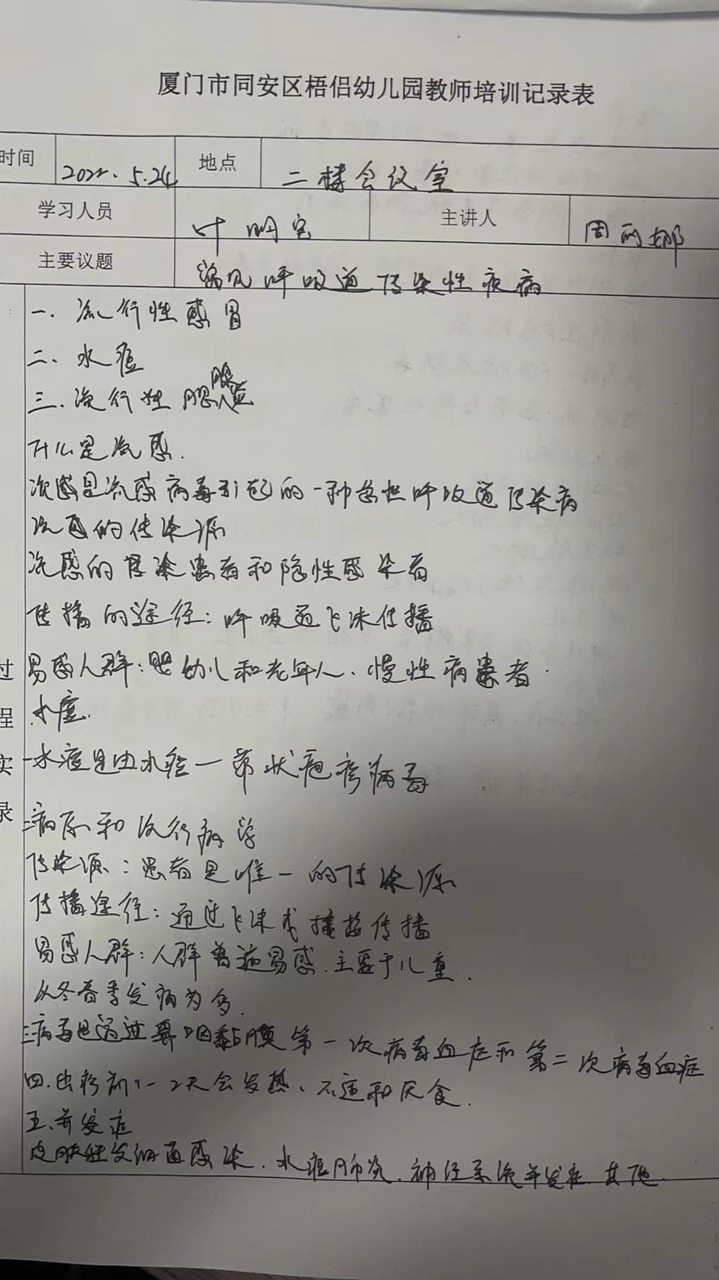 厦门市同安区梧侣幼儿园教师培训记录表
时间 2022.5.24 地点 二楼会议室
学习人员 叶明宝 主讲人 周丽娜
主要议题 常见呼吸道传染性疾病
过程实录
一.流行性感冒
二.水痘
三.流行性腮腺炎
什么是流感.
流感是流感病毒引起的一种急性呼吸道传染病
流感的传染源
流感的传染患者和隐性感染者
传播的途径:呼吸道飞沫传播
易感人群:婴幼儿和老年人、慢性病患者.
水痘.
一水痘是由水痘一带状疱疹病毒
二病原和流行病学
传染源:患者是唯一的传染源
传播途径:通过飞沫或接触传播
易感人群:人群普遍易感.主要于儿童.
以冬春季发病为多.
三病毒是通过鼻咽黏膜第一次病毒血症和第二次病毒血症
四.出疹前1-2天会发热、不适和厌食.
五.并发症
皮肤继发细菌感染.水痘肺炎.神经系统并发症.其他